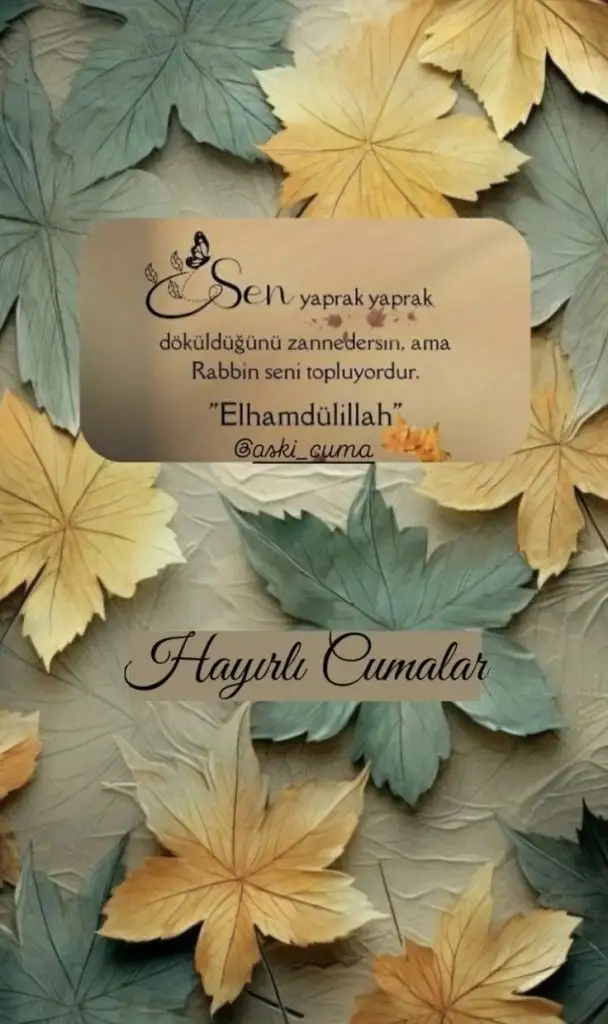 Sen yaprak yaprak
döküldüğünü zannedersin, ama
Rabbin seni topluyordur.
"Elhamdülillah"
@aski_cuma
Hayırlı Cumalar